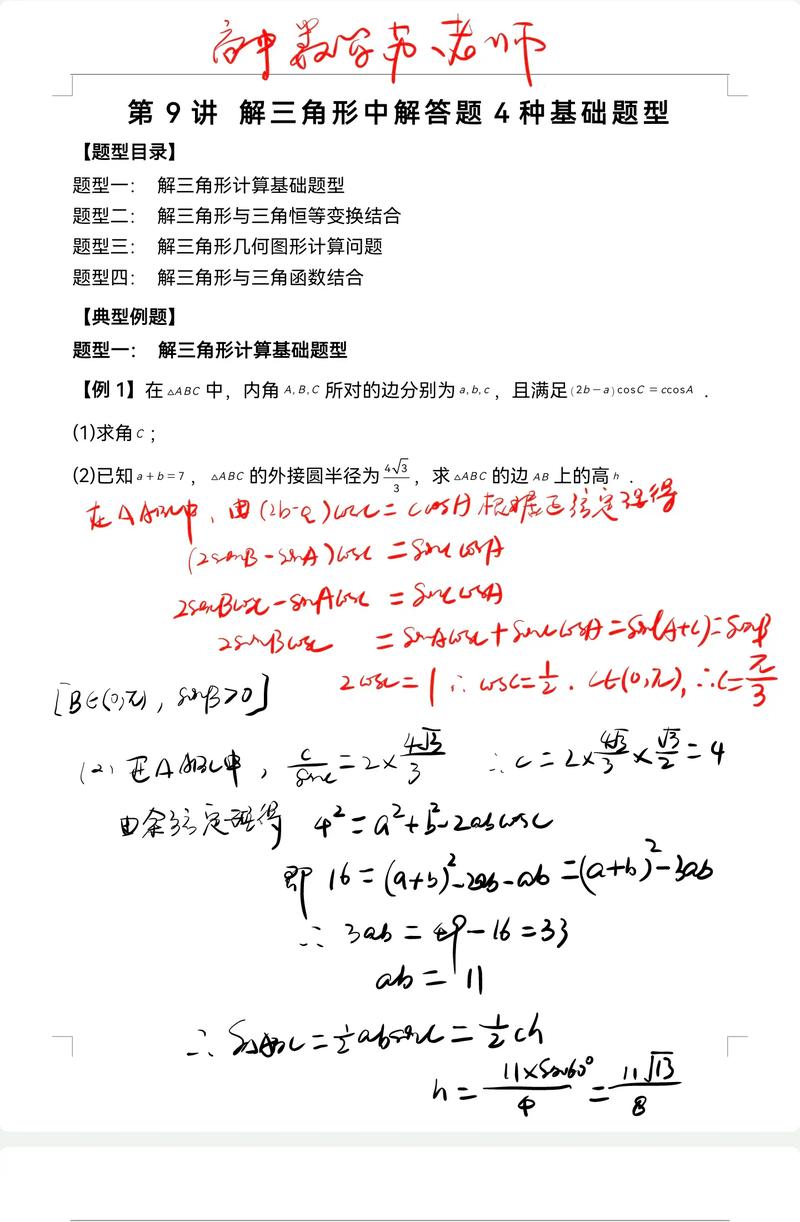 高中数学苏老师
第 9 讲 解三角形中解答题 4 种基础题型
【题型目录】
题型一： 解三角形计算基础题型
题型二： 解三角形与三角恒等变换结合
题型三： 解三角形几何图形计算问题
题型四： 解三角形与三角函数结合
【典型例题】
题型一： 解三角形计算基础题型
【例 1】在 △ABC 中，内角 A,B,C 所对的边分别为 a,b,c ，且满足 (2b−a)cosC=ccosA ．
(1)求角 C ；
(2)已知 a+b=7 ，△ABC 的外接圆半径为 4√3/3 ，求 △ABC 的边 AB 上的高 h ．
在△ABC中，由(2b-a)cosC=ccosA根据正弦定理得
(2sinB-sinA)cosC=sinCcosA
2sinBcosC-sinAcosC=sinCcosA
2sinBcosC=sinAcosC+sinCcosA=sin(A+C)=sinB
[B∈(0,π)，sinB>0] 2cosC=1∴cosC=1/2．C∈(0,π),∴C=π/3
(2)在△ABC中，c/sinC=2×4√3/3 ∴c=2×4√3/3×√3/2=4
由余弦定理得 4²=a²+b²-2abcosC
即 16=(a+b)²-2ab-ab=(a+b)²-3ab
∴ 3ab=49-16=33
ab=11
∴S△ABC=1/2absinC=1/2ch
h=11×sin60°/4=11√3/8